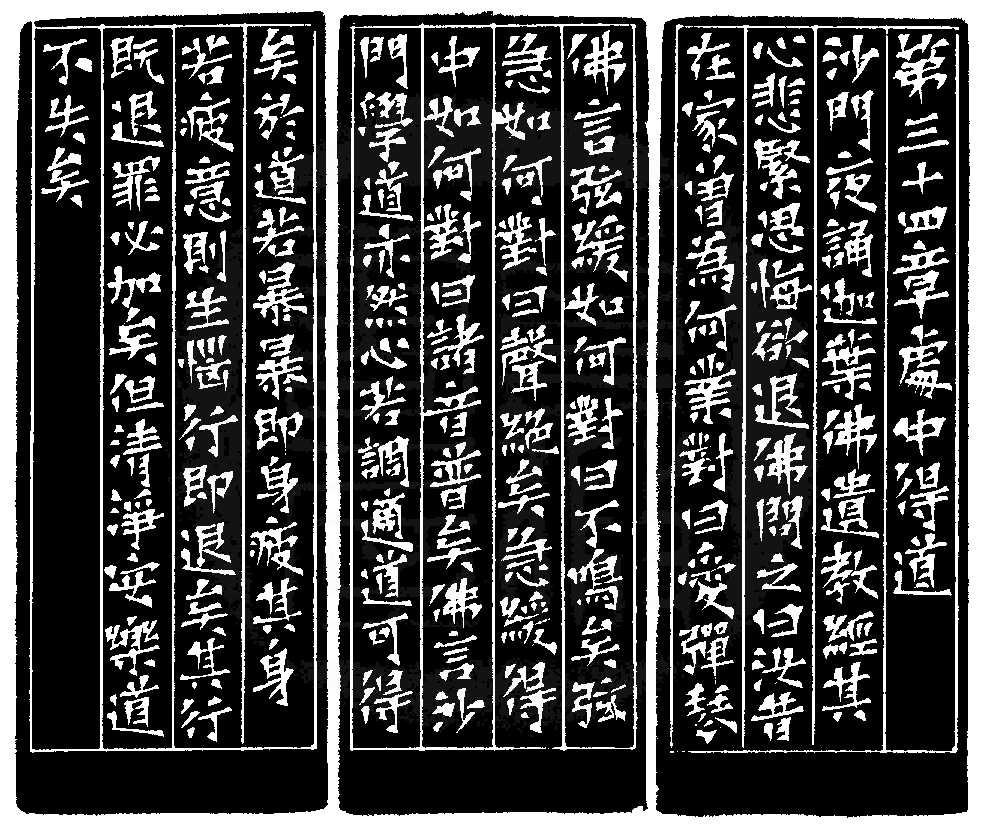 第三十四章處中得道
沙門夜誦迦葉佛遺教經其
心悲緊思悔欲退佛問之曰汝昔
在家曽為何業對曰愛彈琴
佛言弦緩如何對曰不鳴矣弦
急如何對曰聲絕矣急緩得
中如何對曰諸音普矣佛言沙
門學道亦然心若調適道可得
矣於道若暴暴即身疲其身
若疲意則生惱行即退矣其行
既退罪必加矣但清淨安樂道
不失矣